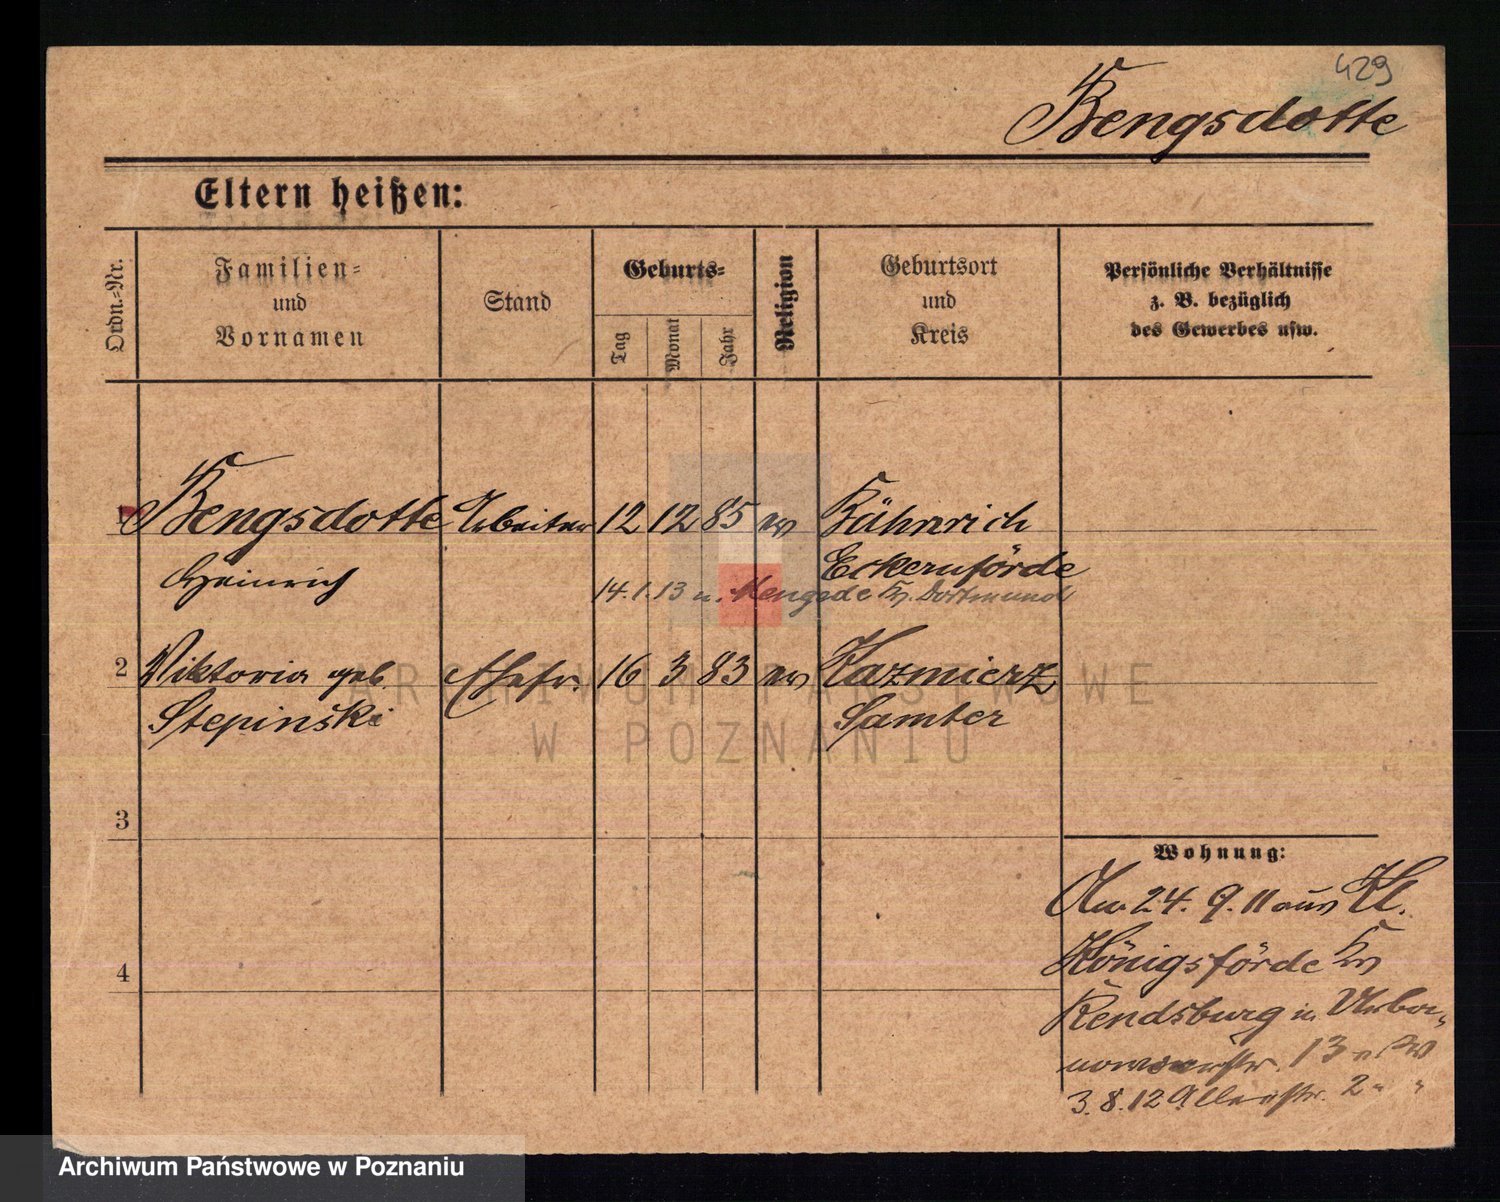 429
Bengsdotte
Eltern heißen:
Ordn.-Nr.
Familien-
und
Vornamen
Stand
Geburts-
Tag
Monat
Jahr
Religion
Geburtsort
und
Kreis
Persönliche Verhältnisse
z. B. bezüglich
des Gewerbes usw.
1 Bengsdotte Arbeiter 12 12 85 ev
Heinrich Eckernförde
14.1.13 n. Mengede Kr. Dortmund
2 Viktoria geb. Ehefr. 16 3 83 ev Kazmierz
Stepinski Samter
ARCHIWUM PAŃSTWOWE
W POZNANIU
3
4
Wohnung:
24. 9. 11 aus Kl.
Königsförde Kr
Rendsburg in
13
3.8.12 2 " "
Archiwum Państwowe w Poznaniu